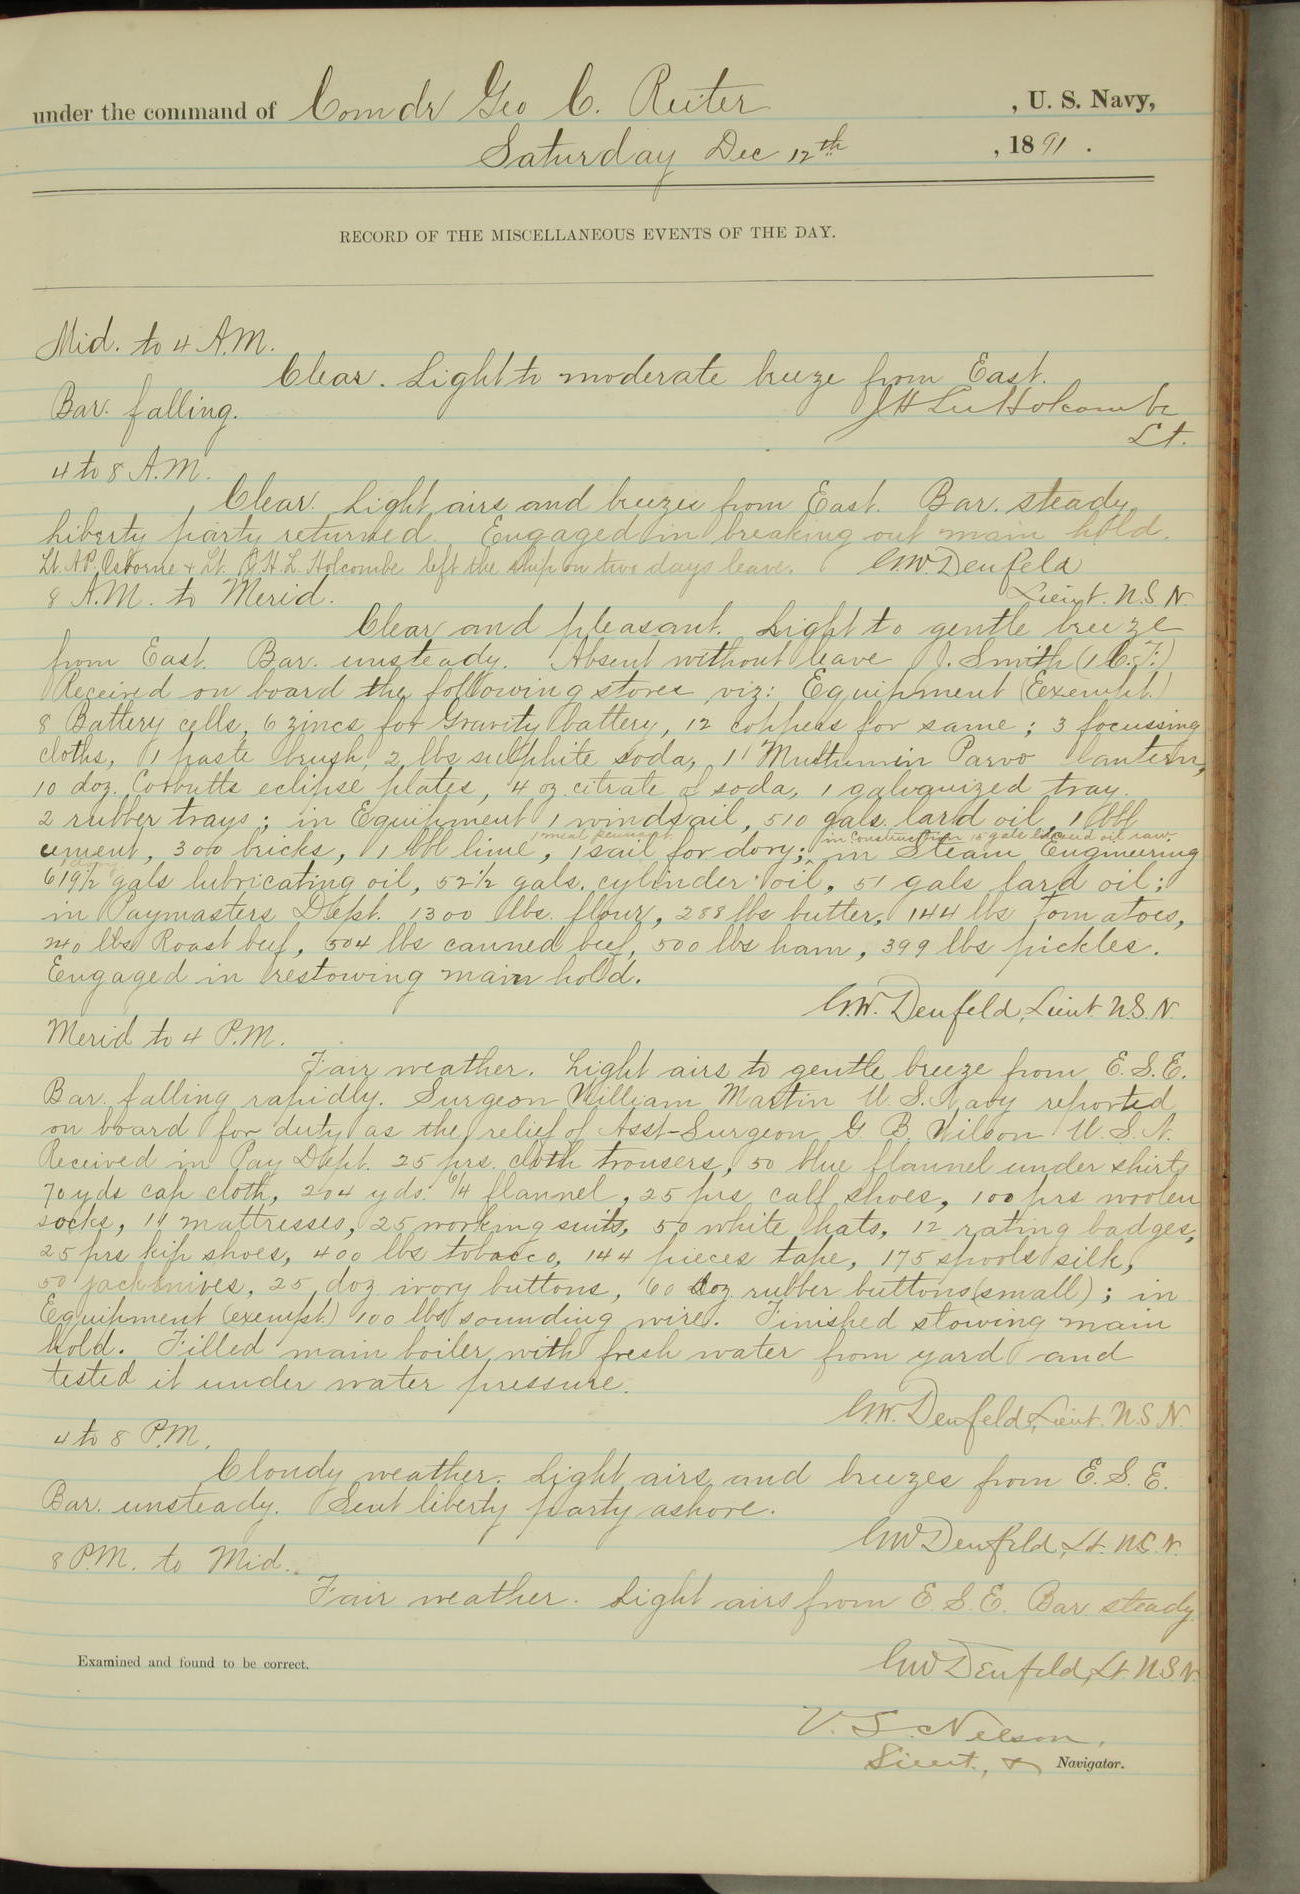 under the command of Comdr Geo C. Reiter , U. S. Navy,
Saturday Dec 12th , 1891 .
RECORD OF THE MISCELLANEOUS EVENTS OF THE DAY.
Mid. to 4 A.M.
Clear. Light to moderate breeze from East.
Bar. falling.
J H Lee Holcombe
Lt.
4 to 8 A.M.
Clear. Light airs and breezes from East. Bar. steady.
Liberty party returned. Engaged in breaking out main hold.
Lt. A.P. Osborne & Lt. J.H.L. Holcombe left the ship on two days leave. G.W. Denfeld
Lieut. U.S.N.
8 A.M. to Merid.
Clear and pleasant. Light to gentle breeze
from East. Bar. unsteady. Absent without leave J. Smith (1 C.F.)
Received on board the following stores viz: Equipment (Exempt.)
8 Battery cells, 6 zincs for Gravity battery, 12 coppers for same; 3 focussing
cloths, 1 paste brush, 2 lbs sulphite soda, 1 Multumin Parvo lantern,
10 doz. Carbutts eclipse plates, 4 oz. citrate of soda, 1 galvanized tray.
2 rubber trays; in Equipment 1 windsail, 510 gals. lard oil, 1 bbl
1 meal pennant in Construction 15 gals linseed oil raw.
cement, 300 bricks, 1 bbl lime, 1 sail for dory; in Steam Engineering
619½ gals lubricating oil, 52½ gals. cylinder oil, 51 gals lard oil;
in Paymasters Dept. 1300 lbs. flour, 288 lbs butter, 144 lbs tomatoes,
240 lbs Roast beef, 504 lbs canned beef, 500 lbs ham, 399 lbs pickles.
Engaged in restowing main hold.
G.W. Denfeld, Lieut. U.S.N.
Merid to 4 P.M.
Fair weather. Light airs to gentle breeze from E.S.E.
Bar. falling rapidly. Surgeon William Martin U.S. Navy reported
on board for duty as the relief of Asst-Surgeon G. B. Wilson U.S.N.
Received in Pay Dept. 25 prs. cloth trousers, 50 blue flannel under shirts
70 yds cap cloth, 204 yds. 6/4 flannel, 25 prs calf shoes, 100 prs woolen
socks, 11 mattresses, 25 working suits, 50 white hats, 12 rating badges,
25 prs kip shoes, 400 lbs tobacco, 144 pieces tape, 175 spools silk,
50 jacknives, 25 doz ivory buttons, 60 doz rubber buttons (small); in
Equipment (exempt.) 100 lbs sounding wire. Finished stowing main
hold. Filled main boiler with fresh water from yard and
tested it under water pressure.
G.W. Denfeld, Lieut. U.S.N.
4 to 8 P.M.
Cloudy weather. Light airs and breezes from E.S.E.
Bar. unsteady. Sent liberty party ashore.
G W Denfeld, Lt. U.S.N.
8 P.M. to Mid.
Fair weather. Light airs from E.S.E. Bar steady.
Examined and found to be correct.
G W Denfeld, Lt. U.S.N.
V. S. Nelson,
Lieut., & Navigator.